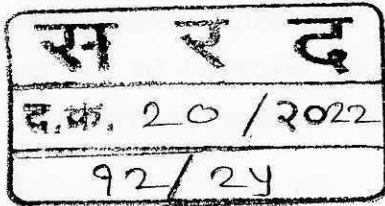 स र द
द.क्र. २० /२०२२
१२/२५